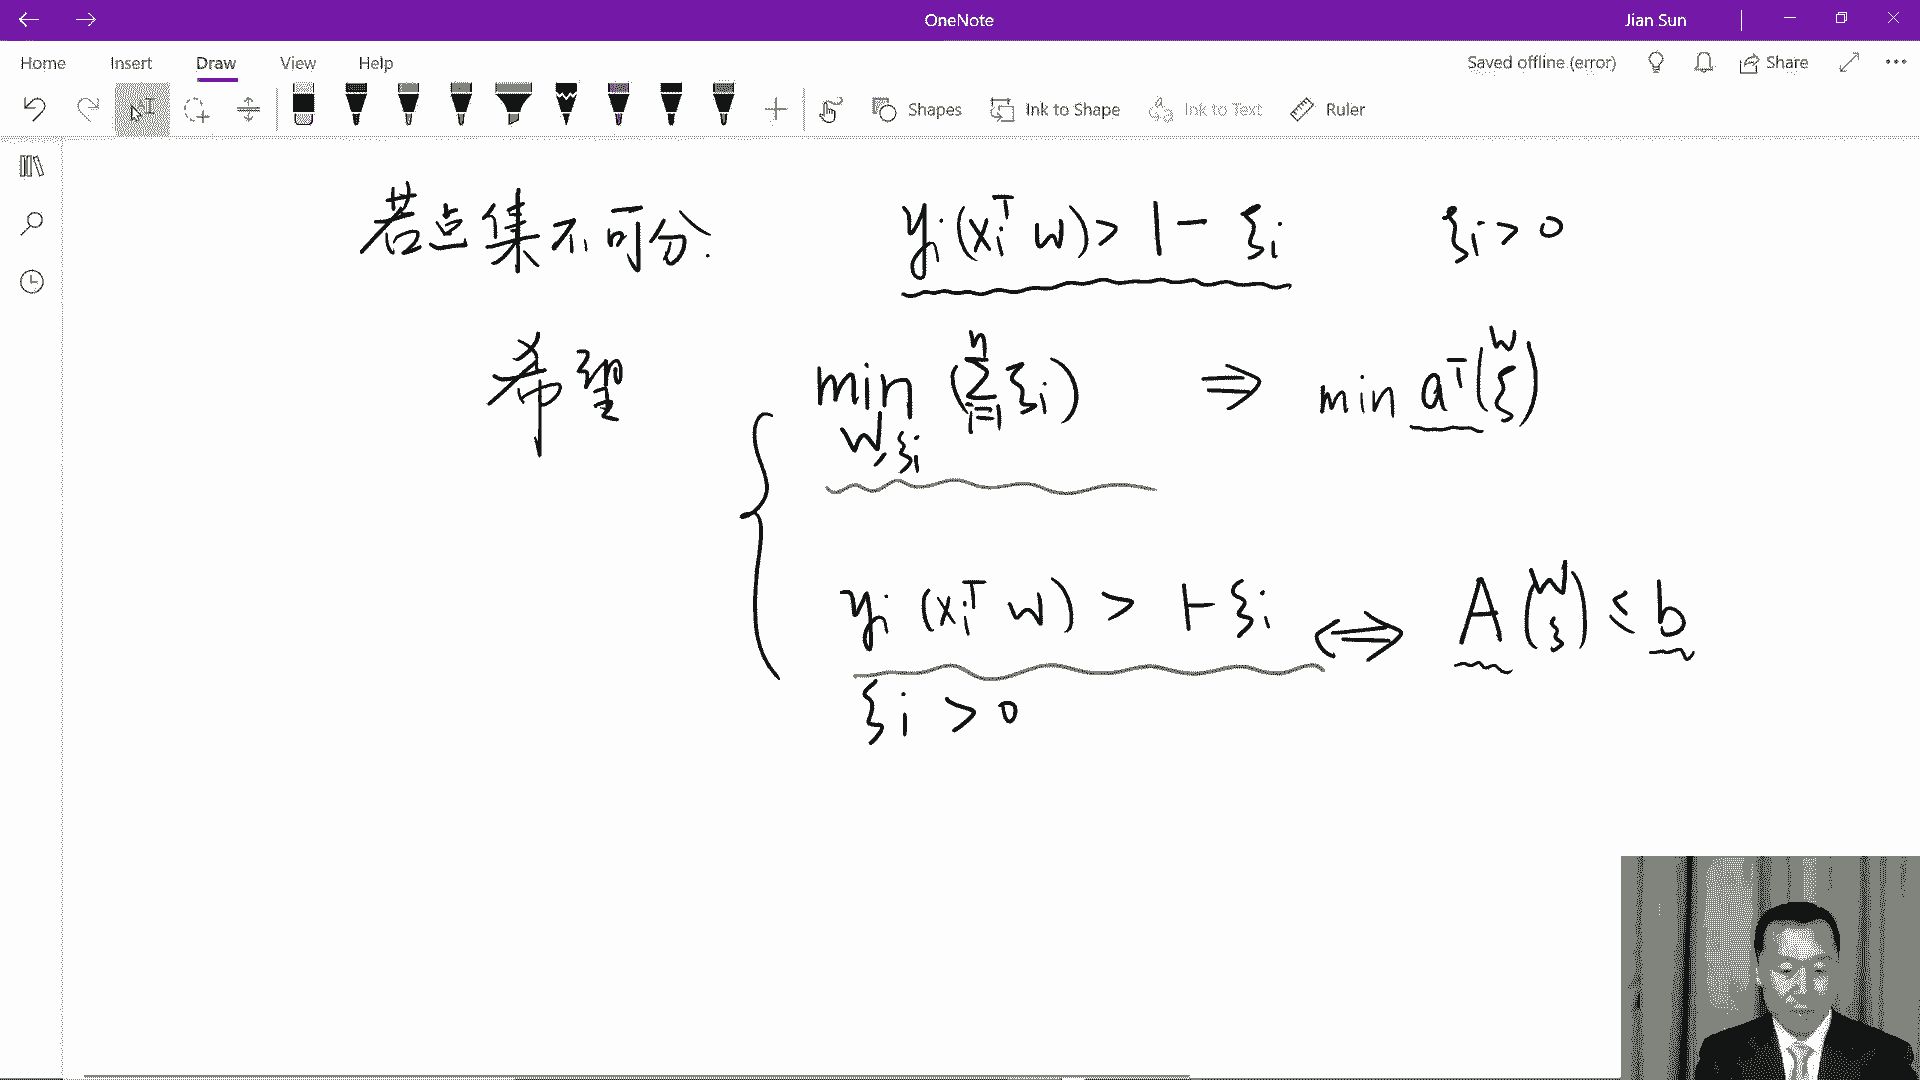 OneNote
Jian Sun
Home Insert Draw View Help
Saved offline (error) Share
Shapes Ink to Shape Ink to Text Ruler
若点集不可分. yᵢ(xᵢᵀ w) > 1 − ξᵢ ξᵢ > 0
希望 min (∑ⁿᵢ₌₁ ξᵢ) ⇒ min aᵀ(w ξ)
w, ξᵢ
yᵢ (xᵢᵀ w) > 1 − ξᵢ ⇔ A (w ξ) ≤ b
ξᵢ > 0